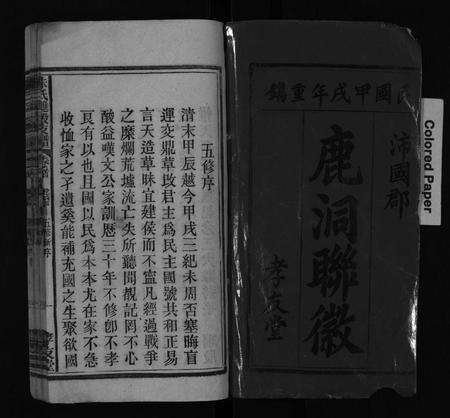 民國甲戌年重鐫
沛國郡
鹿洞聯徽
孝友堂
五修序
清末甲辰越今甲戌三紀未周否塞晦盲
運交鼎草改君主爲民主國號共和正易
言天造草昧宜建侯而不寧凡經過戰爭
之糜爛荒墟流亡失所聽聞覩記罔不心
酸益嘆文公家訓歷三十年不修卽不孝
良有以也且國以民爲本本尤在家不急
收恤家之孑遺奚能補充國之生聚欲國
Colored Paper